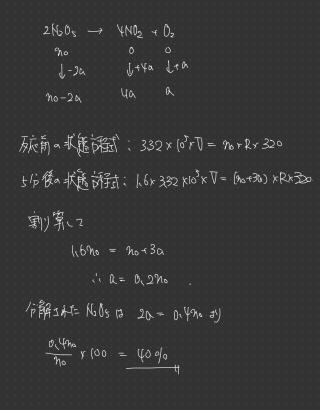 2N₂O₅ → 4NO₂ + O₂
n₀ 0 0
↓-2a ↓+4a ↓+a
n₀-2a 4a a
反応前の状態方程式: 332×10³×V = n₀×R×320
5分後の状態方程式: 1.6×332×10³×V = (n₀+3a)×R×320
割り算して
1.6n₀ = n₀+3a
∴ a = 0.2n₀.
分解された N₂O₅ は 2a = 0.4n₀ より
0.4n₀/n₀ × 100 = 40%